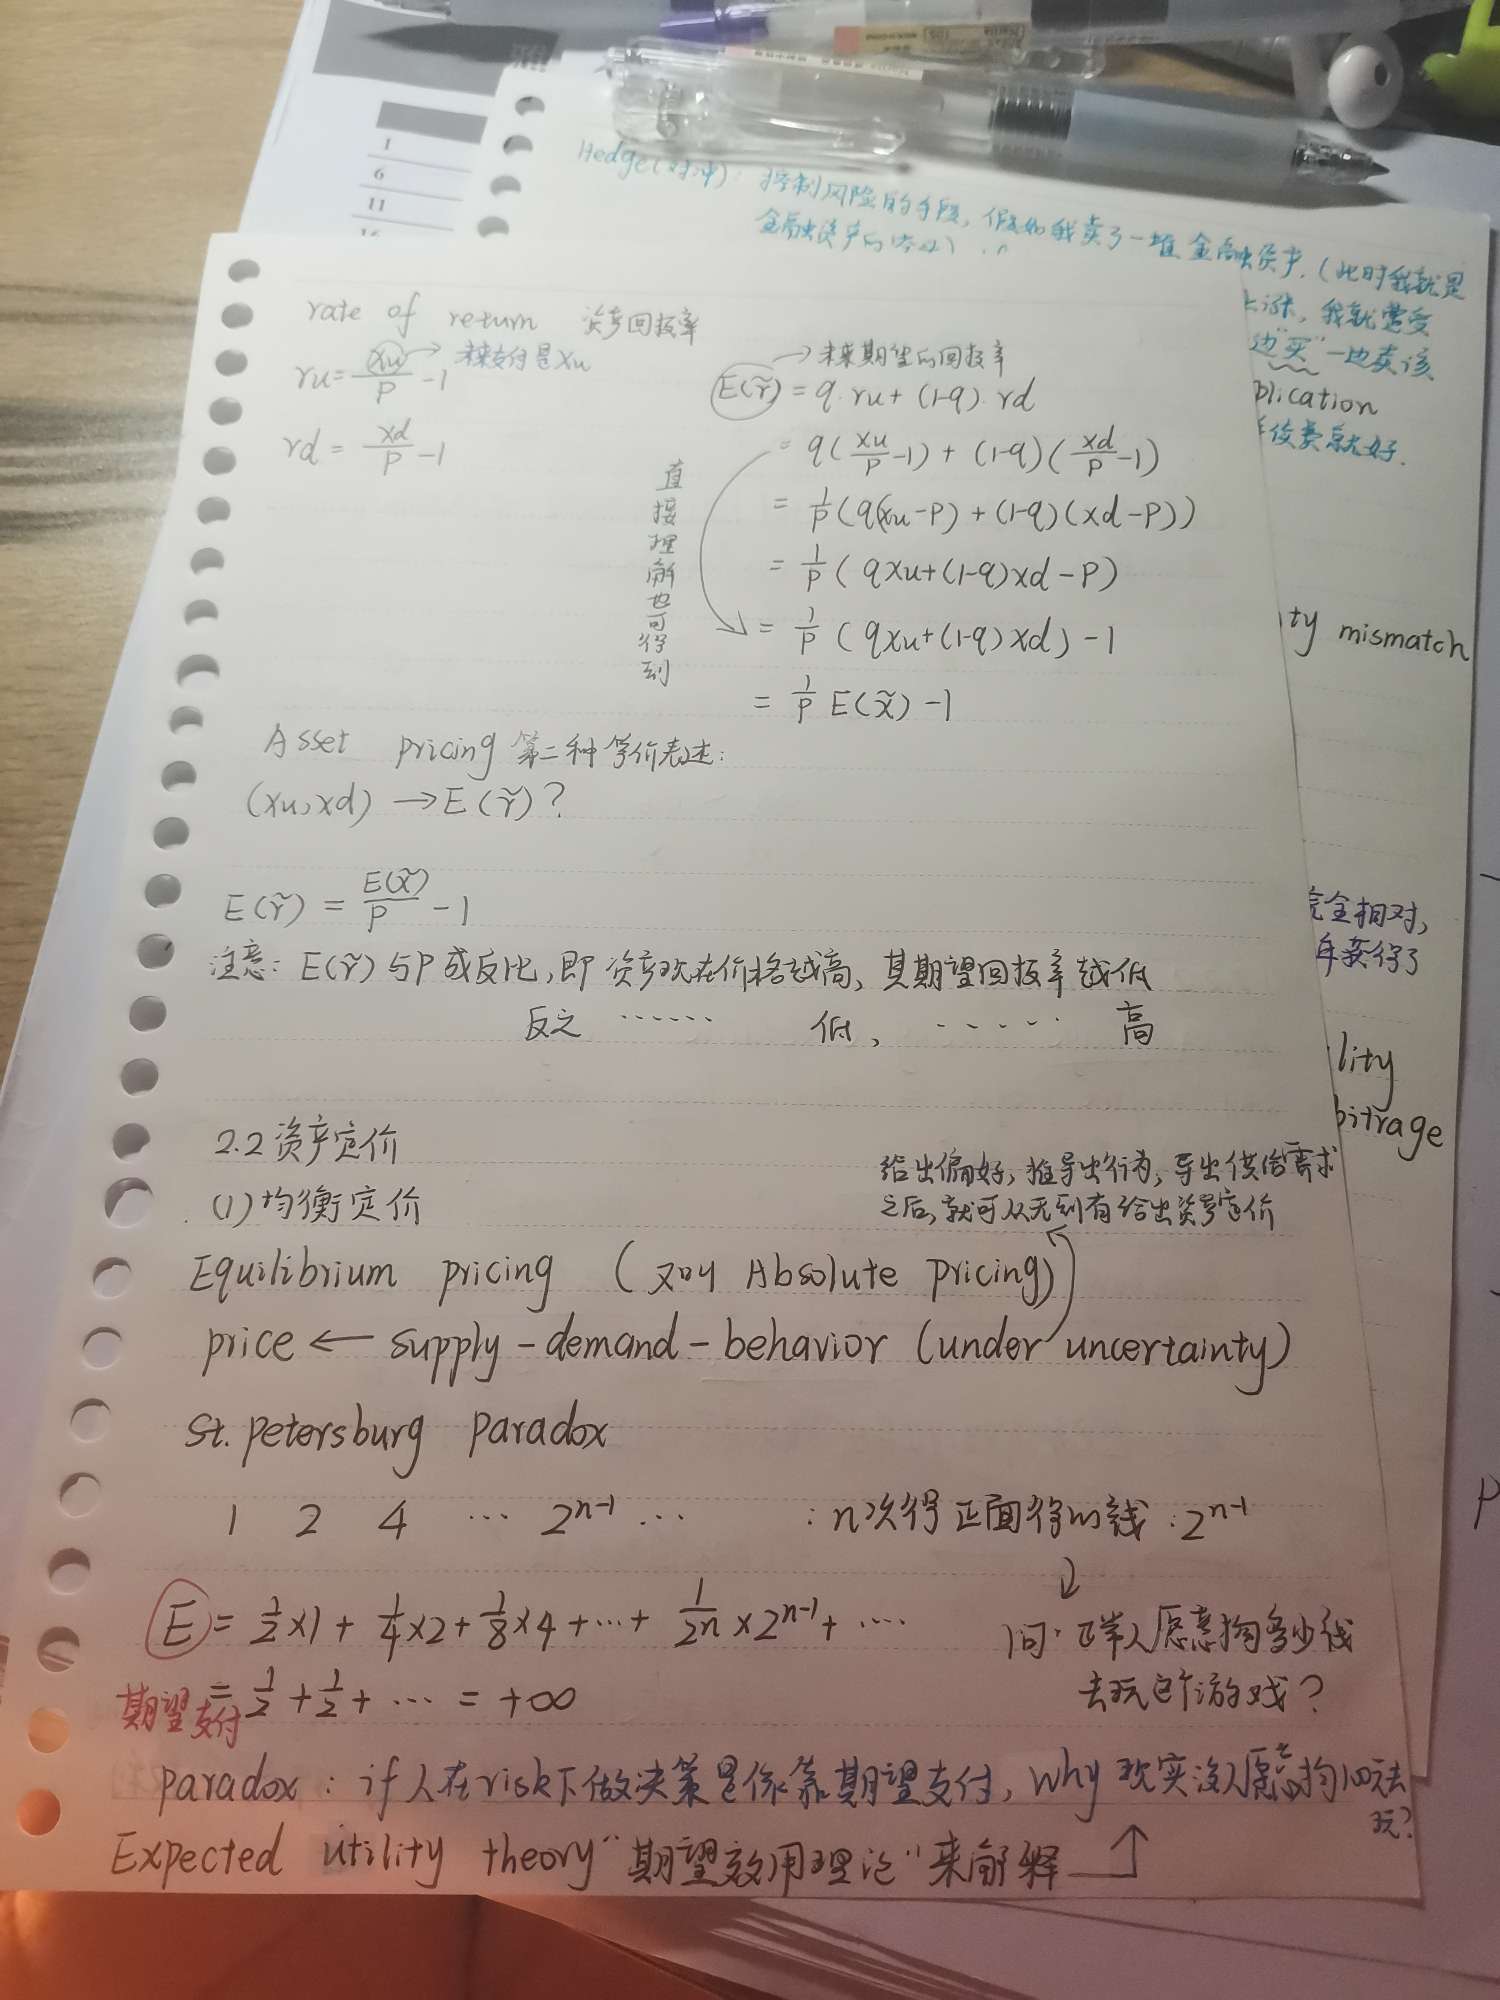 1
6
11
Hedge(对冲): 控制风险的手段, 假如我卖了一堆金融资产, (此时我就是
金融资产的
上涨, 我就需受
边"买"一边卖该
plication
手续费就好.
ity mismatch
完全相对,
获得了
lity
bitrage
rate of return 资产回报率
ru = xu/P - 1 → 未来支付是xu
rd = xd/P - 1
→ 未来期望的回报率
E(r̃) = q·ru + (1-q)·rd
= q(xu/P - 1) + (1-q)(xd/P - 1)
= 1/P (q(xu-P) + (1-q)(xd-P))
= 1/P (qxu + (1-q)xd - P)
= 1/P (qxu + (1-q)xd) - 1
= 1/P E(x̃) - 1
直接理解也可得到
Asset pricing 第二种等价表述:
(xu, xd) → E(r̃)?
E(r̃) = E(x̃)/P - 1
注意: E(r̃)与P成反比, 即资产现在价格越高, 其期望回报率越低
反之 …… 低, ····· 高
2.2 资产定价
(1) 均衡定价
给出偏好, 推导出行为, 导出供给需求
之后, 就可从无到有给出资产定价
Equilibrium pricing (又叫 Absolute pricing)
price ← supply-demand-behavior (under uncertainty)
St. petersburg paradox
1 2 4 … 2ⁿ⁻¹ … : n次得正面得的钱: 2ⁿ⁻¹
E = 1/2×1 + 1/4×2 + 1/8×4 + … + 1/2n × 2ⁿ⁻¹ + …
= 1/2 + 1/2 + … = +∞
期望支付
问: 正常人愿意掏多少钱
去玩这个游戏?
paradox: if人在risk下做决策是依靠期望支付, why 现实没人愿意掏100元去
玩?
Expected utility theory "期望效用理论"来解释